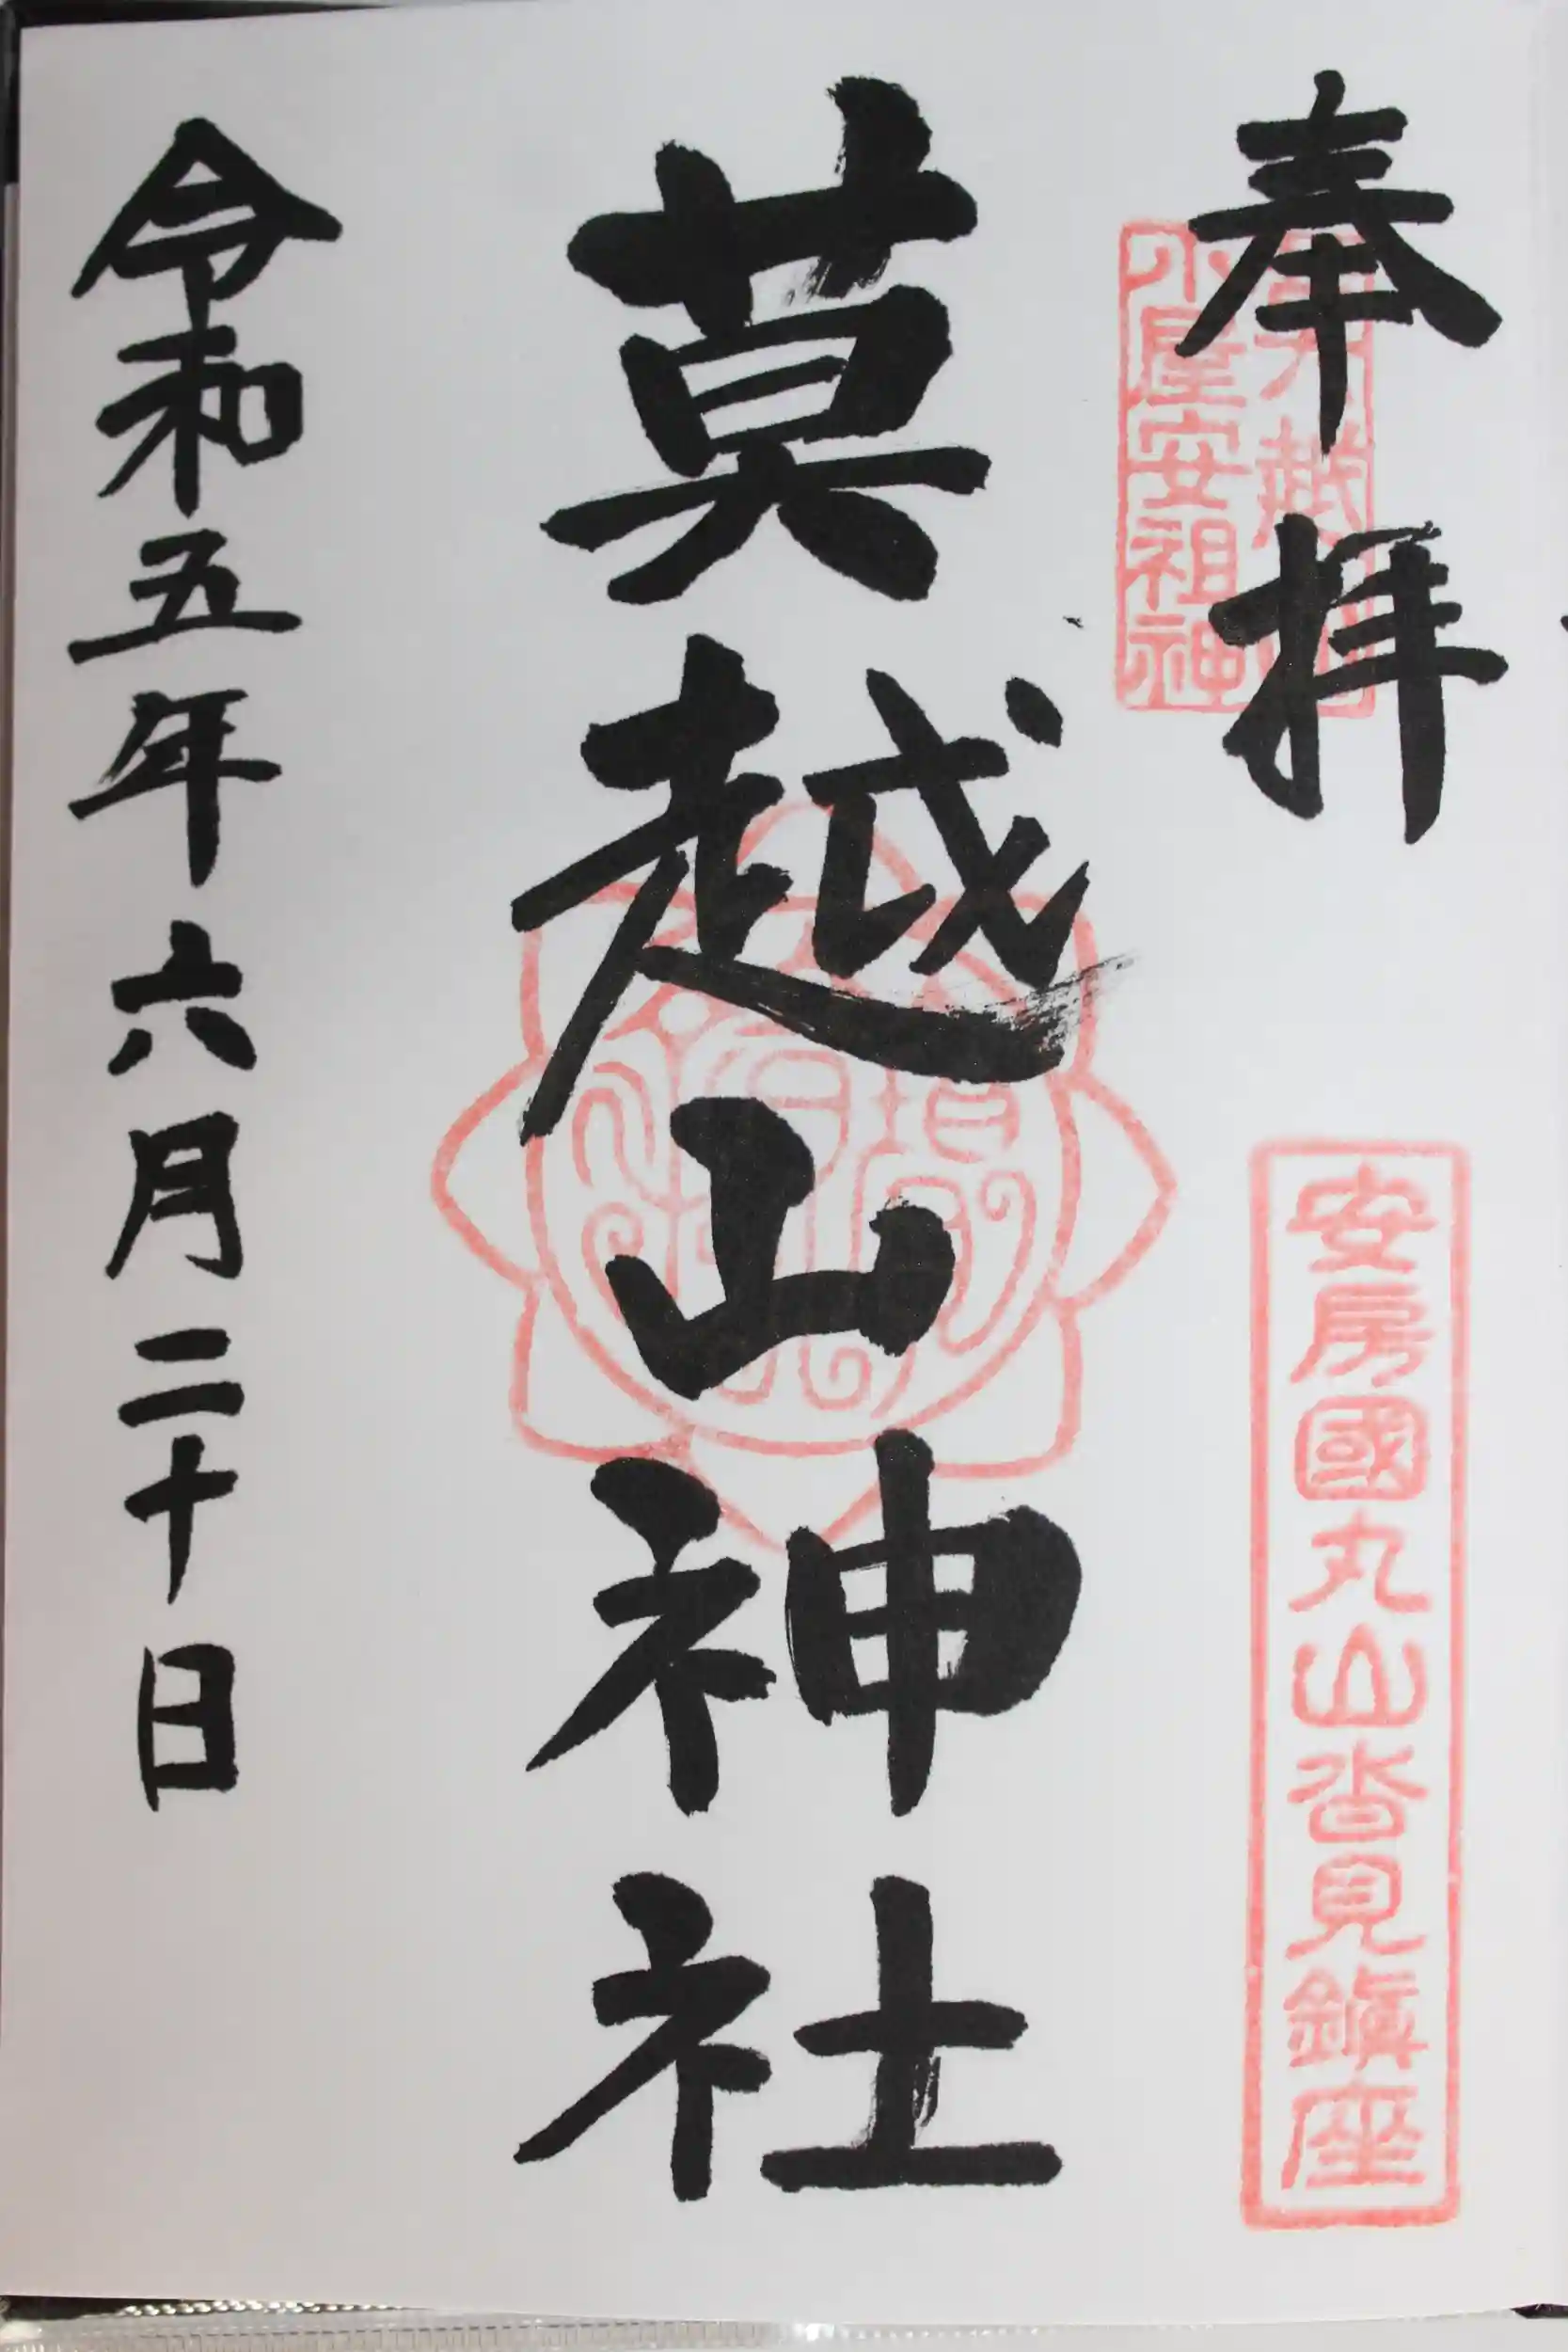 奉拝
小屋安祖神
安房國丸山沓見鎮座
莫越山神社
令和五年六月二十日